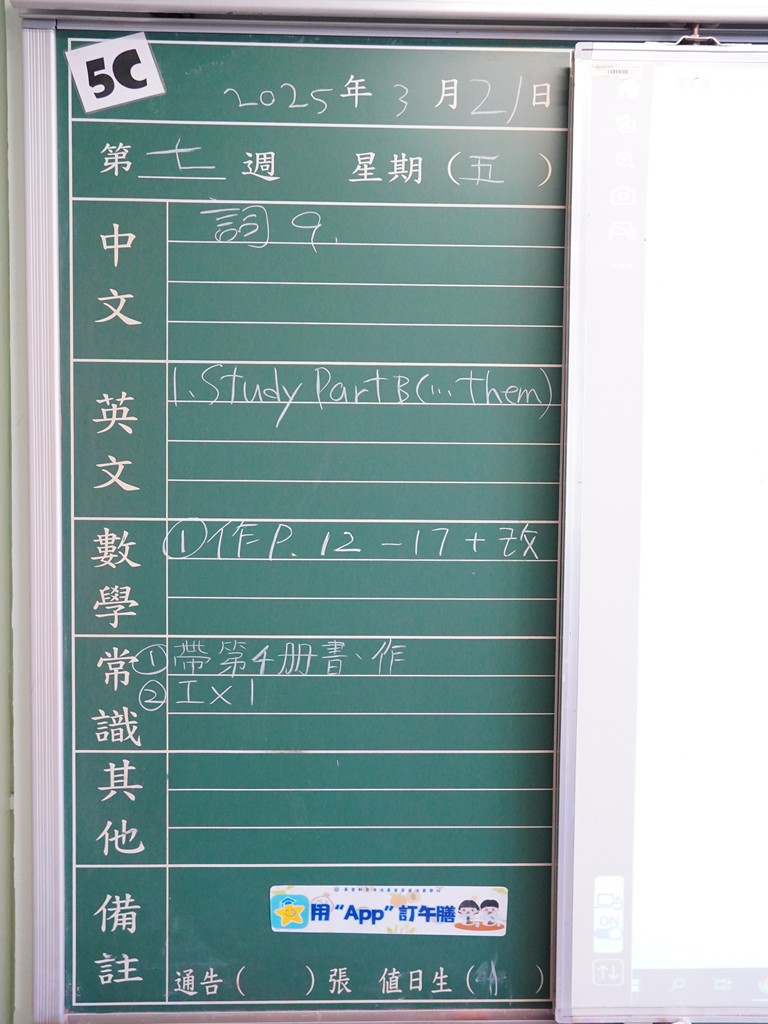 5C
2025年3月21日
第七週 星期(五)
中文 詞9.
英文 1. Study Part B (... them)
數學 ①作P. 12 - 17 + 改
常識 ①帶第4册書、作
②工x1
其他
備註
用"App"訂午膳
通告( )張 值日生( )